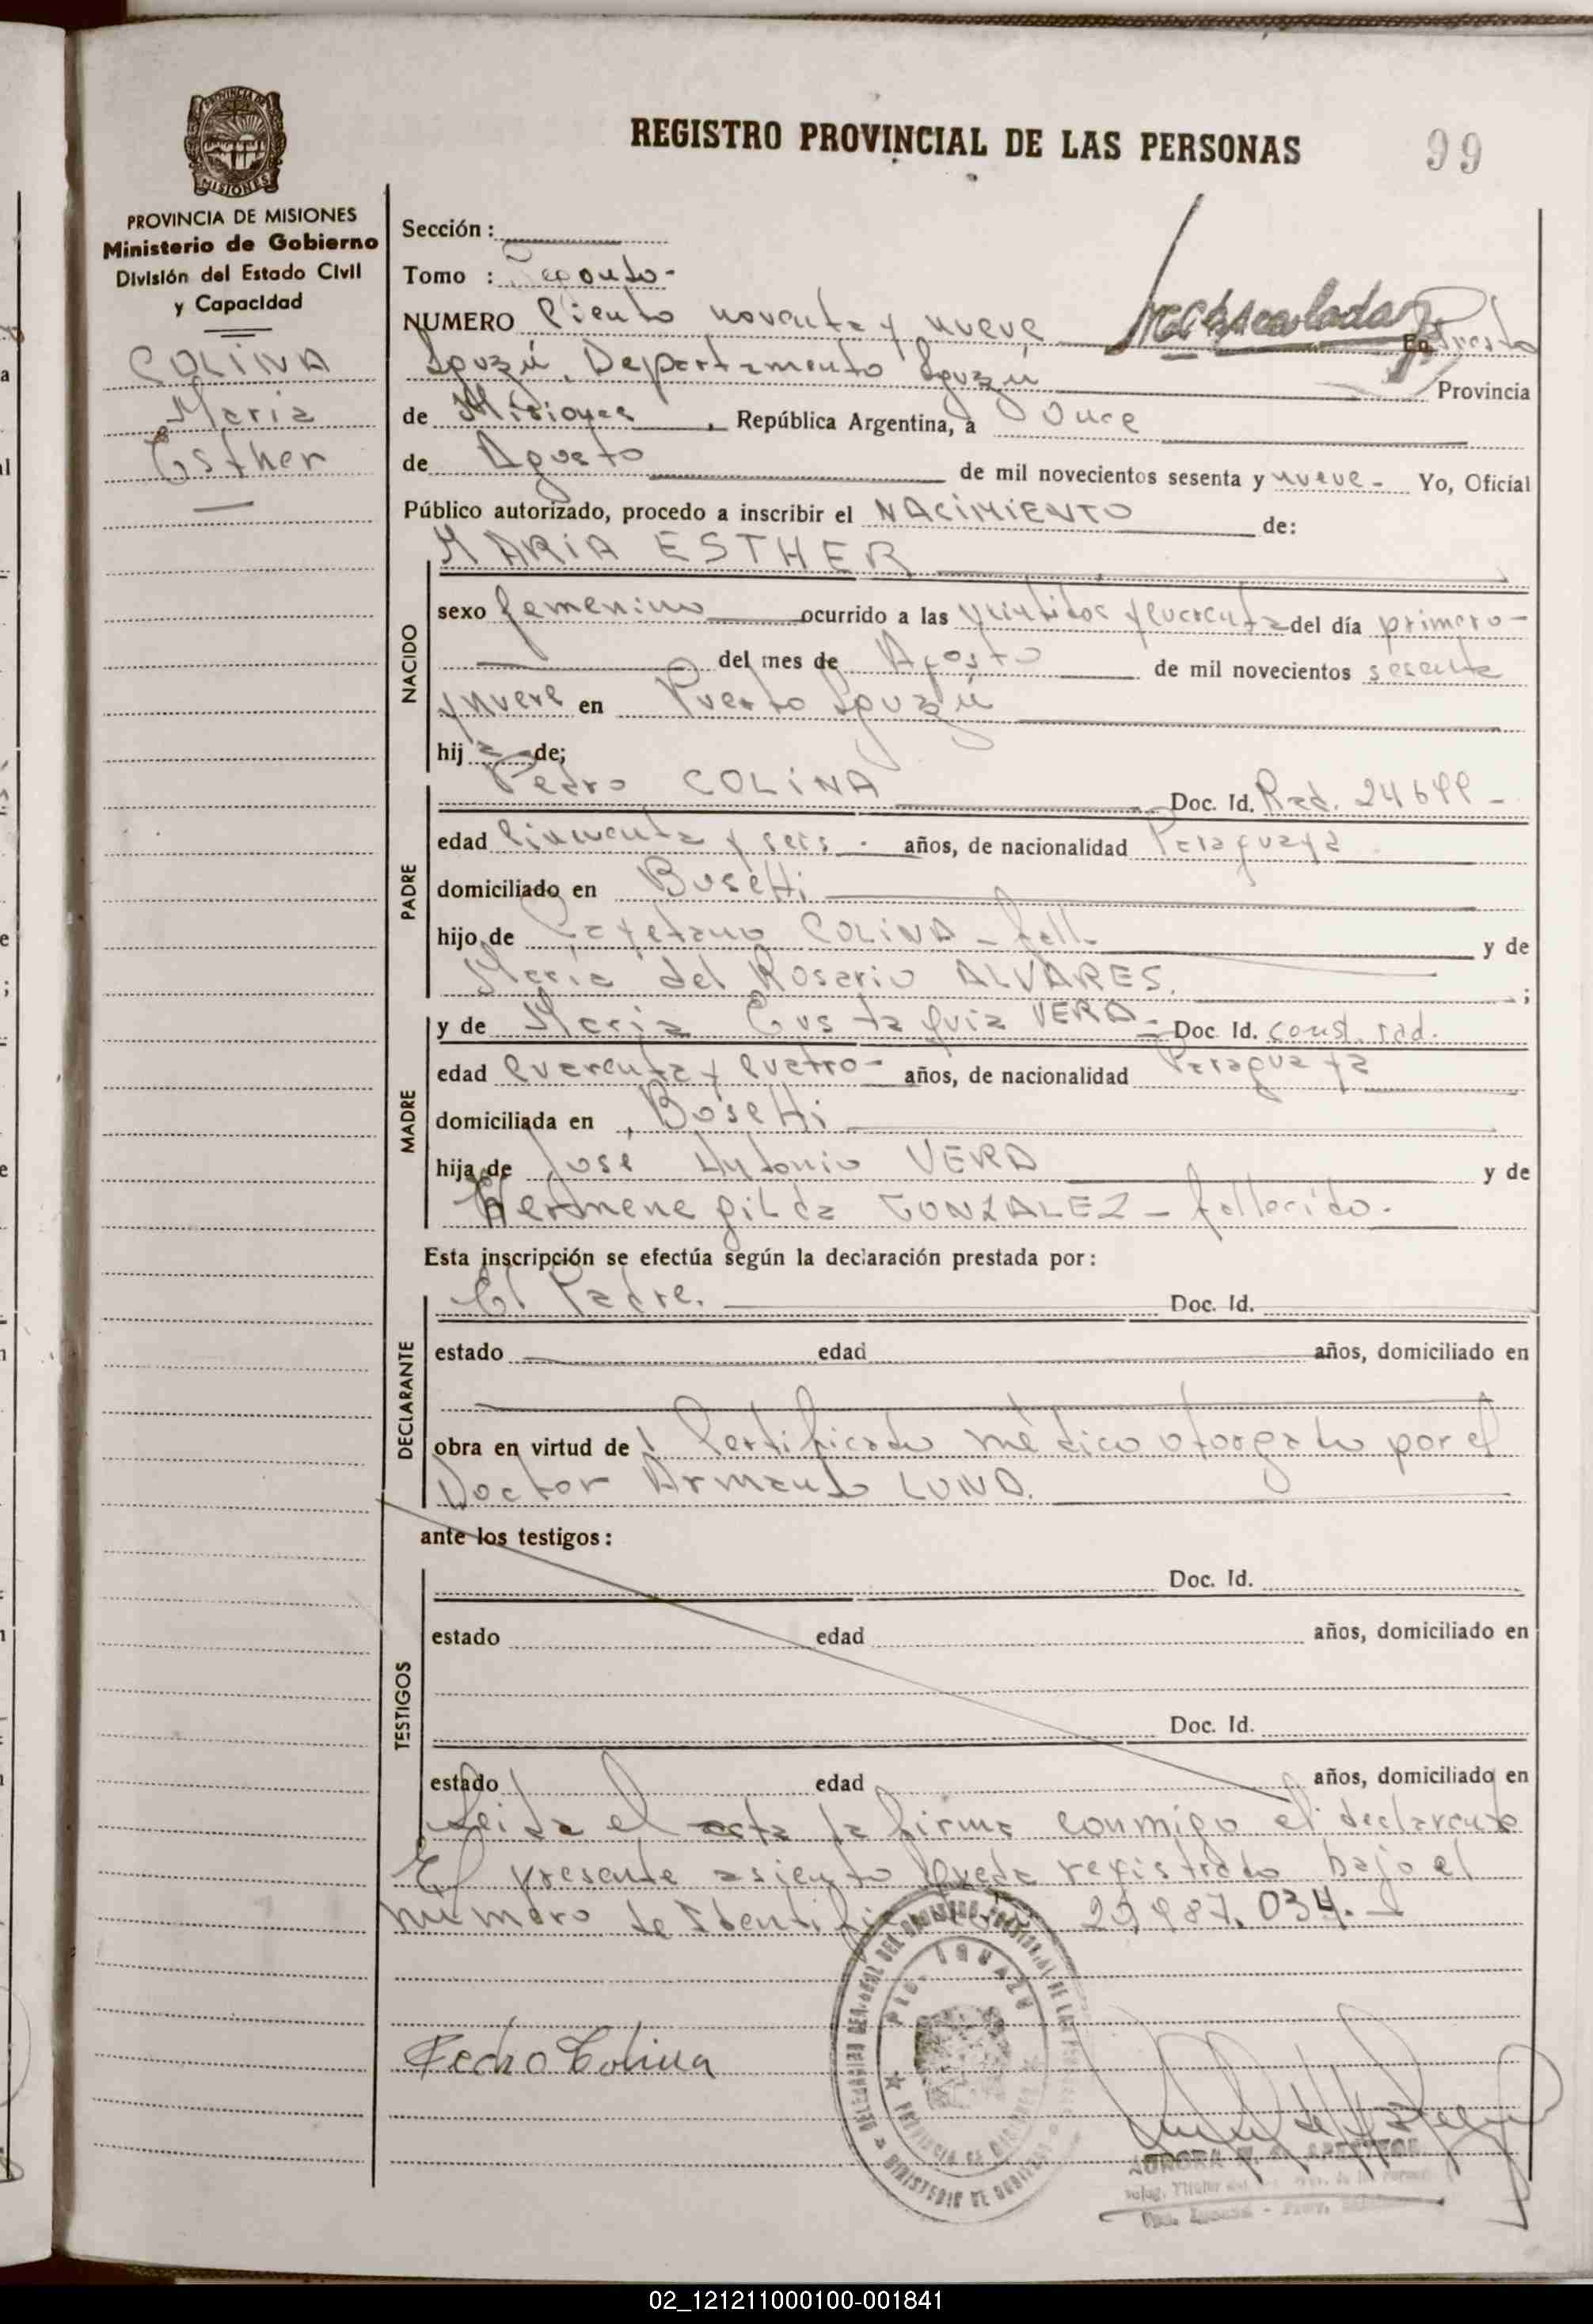 REGISTRO PROVINCIAL DE LAS PERSONAS
99
PROVINCIA DE MISIONES
MISIONES
PROVINCIA DE MISIONES
Ministerio de Gobierno
División del Estado Civil
y Capacidad
COLINA
Maria
Esther
Sección :
Tomo : Segundo-
NUMERO Ciento noventa y nueve En Puerto
Iguazú, Departamento Iguazú Provincia
de Misiones, República Argentina, a Once
de Agosto de mil novecientos sesenta y nueve - Yo, Oficial
Público autorizado, procedo a inscribir el NACIMIENTO de:
NACIDO
MARIA ESTHER
sexo femenino ocurrido a las veintidos y cuarenta del día primero-
del mes de Agosto de mil novecientos sesenta
y nueve en Puerto Iguazú
hija de;
PADRE
Pedro COLINA Doc. Id. Rad.
edad Cincuenta y seis - años, de nacionalidad Paraguaya
domiciliado en Bosetti
hijo de Cayetano COLINA - fall. y de
María del Rosario ALVARES. ;
MADRE
y de Maria Eustaquia VERA - Doc. Id. const. rad.
edad Cuarenta y Cuatro - años, de nacionalidad Paraguaya
domiciliada en Bosetti
hija de José Antonio VERA y de
Hermenegilda GONZALEZ - fallecido.
Esta inscripción se efectúa según la declaración prestada por:
DECLARANTE
El Padre. Doc. Id.
estado edad años, domiciliado en
obra en virtud de Certificado médico otorgado por el
Doctor Armando LUNA.
ante los testigos:
TESTIGOS
Doc. Id.
estado edad años, domiciliado en
Doc. Id.
estado edad años, domiciliado en
Leida el acta la firma conmigo el declarante
El presente asiento queda registrado bajo el
numero de Identificación 034.-
Pedro Colina
PTO. IGUAZU
PROVINCIA DE MISIONES
MINISTERIO DE GOBIERNO
AURORA
02_121211000100-001841